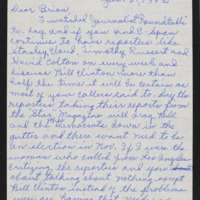 Dear Brian
I watched "Journalist Roundtable"
to-day and if you and C-Span
continue to have reporters like
Timothy Russert and
David Colton on every week and
discuss Bill Clinton more than
half the time it will be certain as
most of your callers said to day the
reporters taking their reports from
the "Star Magazine will drag Bill
and the Democrats down in the
gutter and there won't need to be
an election in Nov. If I were the
woman who called from Los Angeles
critizing the reporters and you
about talking about nothing except
Bill Clinton instead of the problems